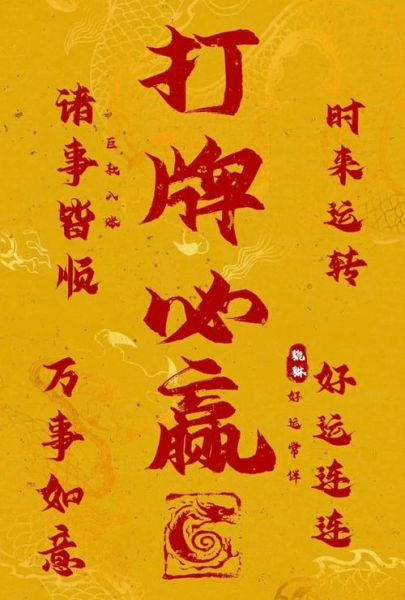 打牌必赢
时来运转
诸事皆顺
巨款入账
好运连连
万事如意
貔貅
好运常伴